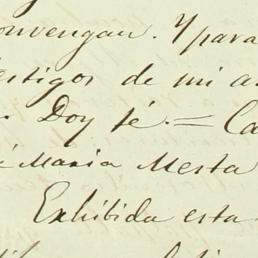 convengan. Y para
testigos de mi a
. Doy fé. = Ca
é Maria Mesta
Exhibida esta